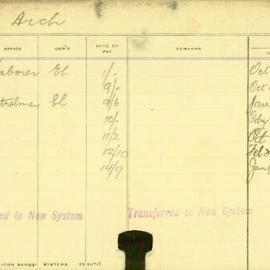 Arch
OFFICE DEP'T RATE OF PAY REMARKS
aborer El. 1/- Oct
9/- Oct
El 9/6 Jan
10/- Feby
11/2 Oct
12/10 Feb
14/9 Jan
ed to New System Transferred to New System
SYSTEMS